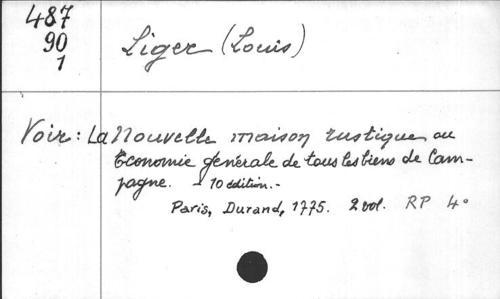 487
90
1
Liger (Louis)
Voir: La Nouvelle maison rustique ou
Économie générale de tous les biens de Cam-
pagne. - 10 édition.-
Paris, Durand, 1775. 2 vol. RP 4°